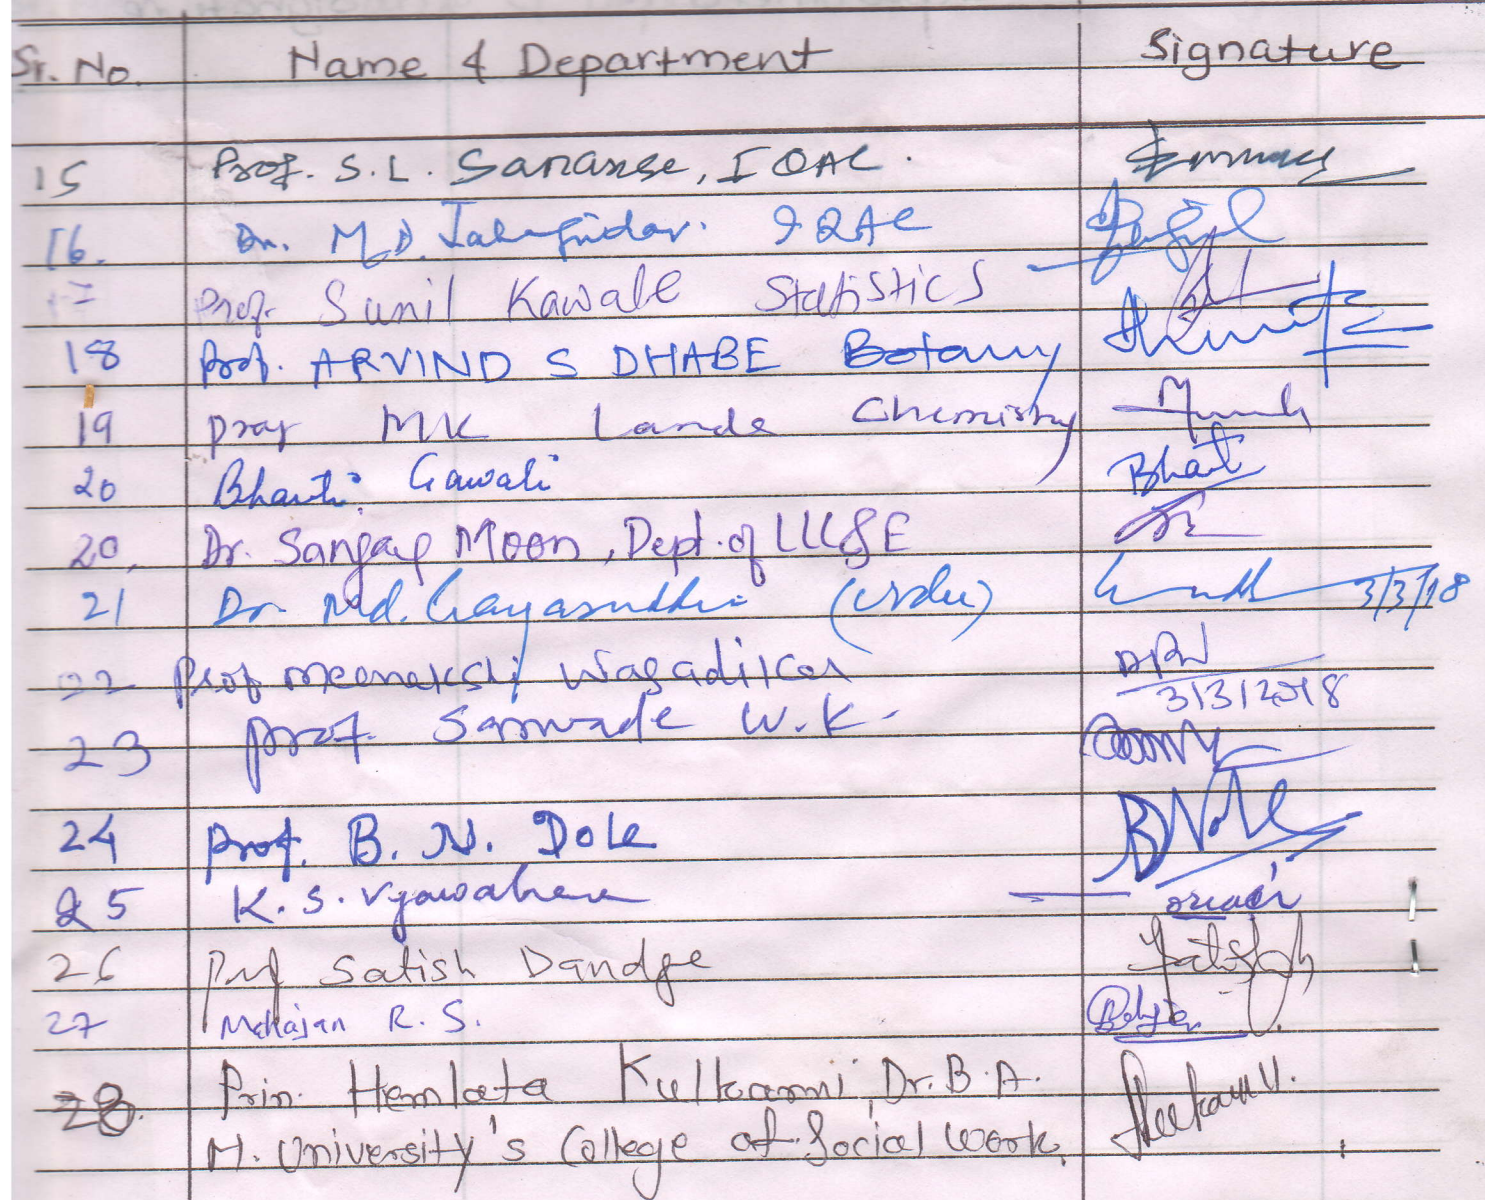 Sr. No. Name & Department Signature
15 Prof. S. L. Sananse, IQAC.
16. Dr. M. D. Jahagirdar. IQAC
17 Prof. Sunil Kawale Statistics
18 Prof. ARVIND S DHABE Botany
19 Prof MK Lande Chemistry
20 Bharti Gawali Bharti
20. Dr. Sanjay Moon, Dept. of
21 Dr. Md. Gayasuddin (Urdu) 3/3/18
22 Prof Meenakshi Wasadikar
3/3/2018
23 Prof. Sarwade W. K.
24 Prof. B. N. Dole BNDole
25 K. S. Vyawahare
26 Prof Satish Dandge Satish
27 Mahajan R. S.
28. Prin. Hemlata Kulkarni, Dr. B. A.
M. University's College of Social Work.